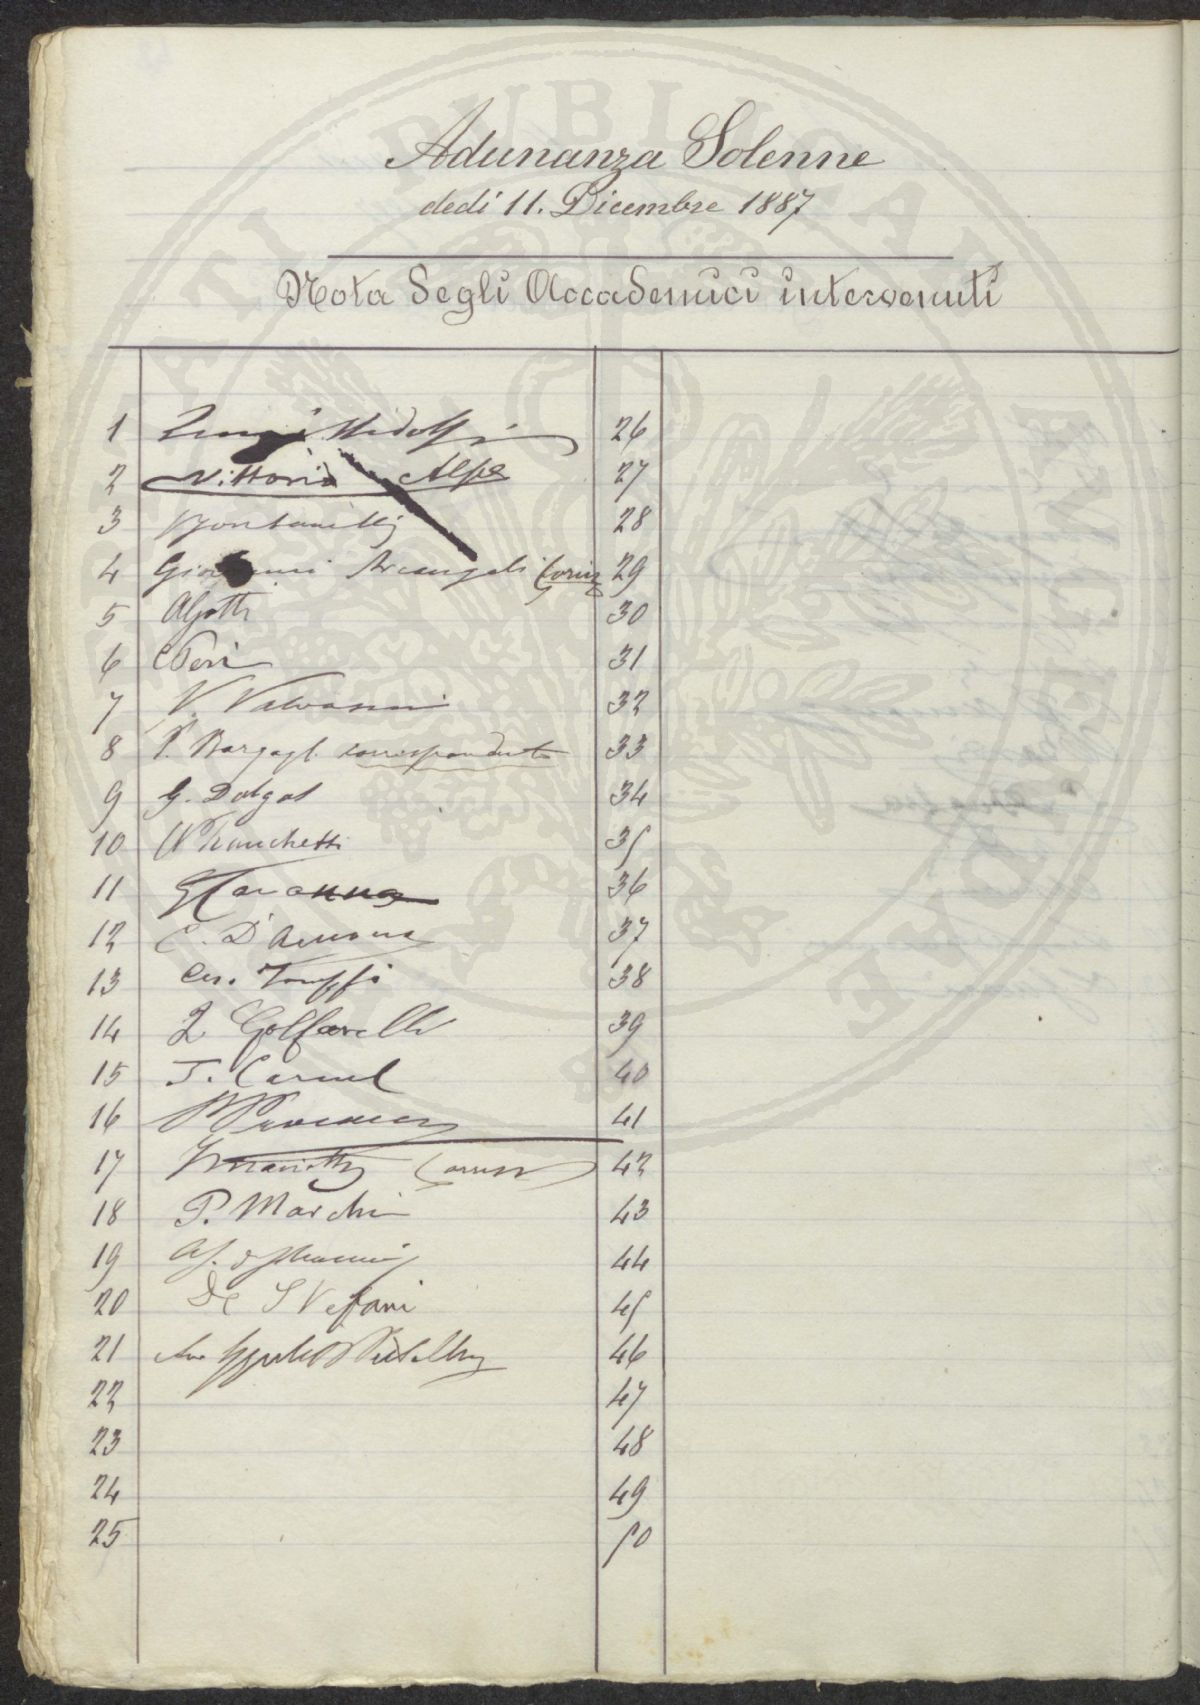 Adunanza Solenne
dedi 11. Dicembre 1887
Nota degli Accademici intervenuti
1 Luigi Ridolfi
2 Vittorio Alpe
3
4 Giovanni Arcangeli Corrisp
5
6
7 V. Valvassori
8 P. Bargagli corrispondente
9 G. Dalgas
10 Franchetti
11
12 C. D'Ancona
13 Ces. Taruffi
14 Golfarelli
15 T. Caruel
16
17 Corrisp
18 P. Marchi
19
20 De Stefani
21
22
23
24
25
26
27
28
29
30
31
32
33
34
35
36
37
38
39
40
41
42
43
44
45
46
47
48
49
50